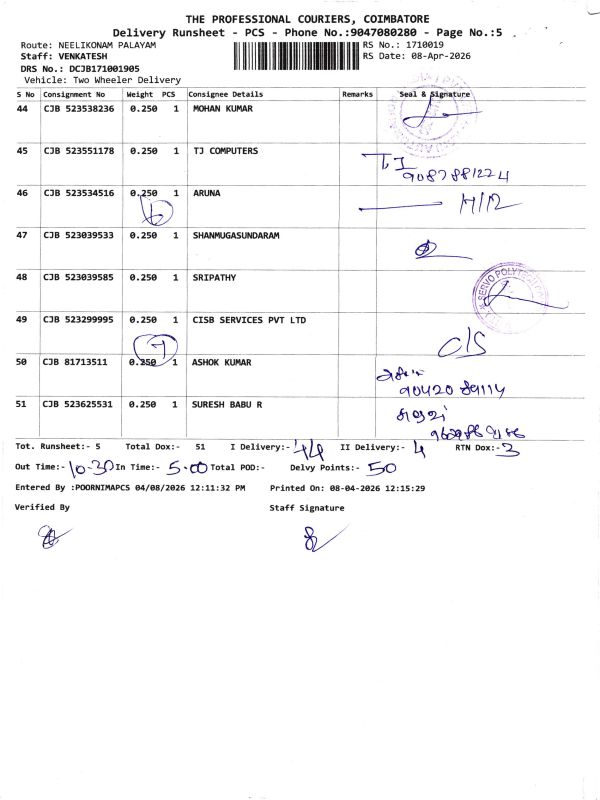 THE PROFESSIONAL COURIERS, COIMBATORE
Delivery Runsheet - PCS - Phone No.:9047080280 - Page No.:5
Route: NEELIKONAM PALAYAM
RS No.: 1710019
Staff: VENKATESH
RS Date: 08-Apr-2026
DRS No.: DCJB171001905
Vehicle: Two Wheeler Delivery
S No Consignment No Weight PCS Consignee Details Remarks Seal & Signature
44 CJB 523538236 0.250 1 MOHAN KUMAR
45 CJB 523551178 0.250 1 TJ COMPUTERS
TJ
9087881224
46 CJB 523534516 0.250 1 ARUNA
6
47 CJB 523039533 0.250 1 SHANMUGASUNDARAM
48 CJB 523039585 0.250 1 SRIPATHY
SERVO POLYTECHNIC
49 CJB 523299995 0.250 1 CISB SERVICES PVT LTD
7
C/S
50 CJB 81713511 0.250 1 ASHOK KUMAR
90420 89114
51 CJB 523625531 0.250 1 SURESH BABU R
Tot. Runsheet:- 5 Total Dox:- 51 I Delivery:- 44 II Delivery:- 4 RTN Dox:- 3
Out Time:- 10-30 In Time:- 5.00 Total POD:- Delvy Points:- 50
Entered By :POORNIMAPCS 04/08/2026 12:11:32 PM Printed On: 08-04-2026 12:15:29
Verified By Staff Signature